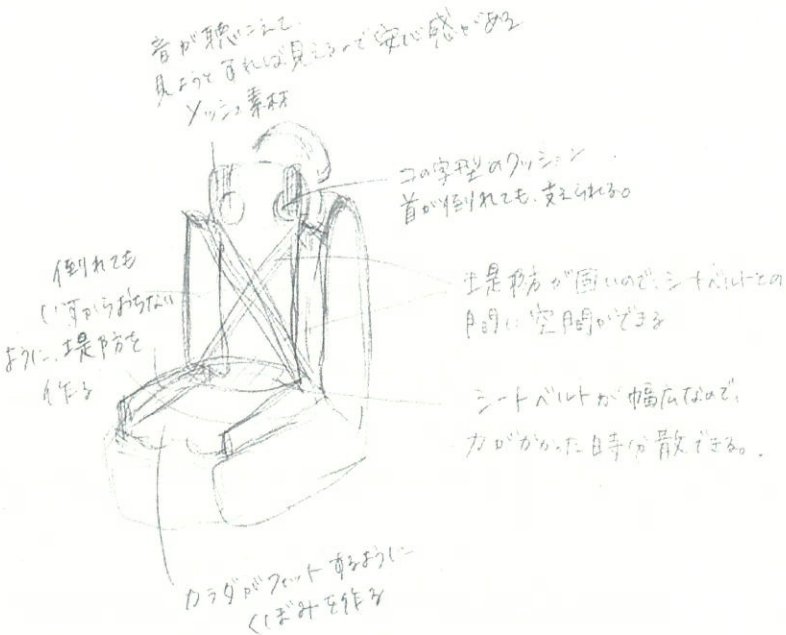 音が聴こえて、
見ようとすれば見えるので安心感がある
メッシュ素材
コの字型のクッション
首が倒れても、支えられる。
倒れても
いすからおちない
ように、堤防を
作る
堤防が固いので、シートベルトとの
間に空間ができる
シートベルトが幅広なので、
力がかかった時分散できる。
カラダがフィットするように
くぼみを作る